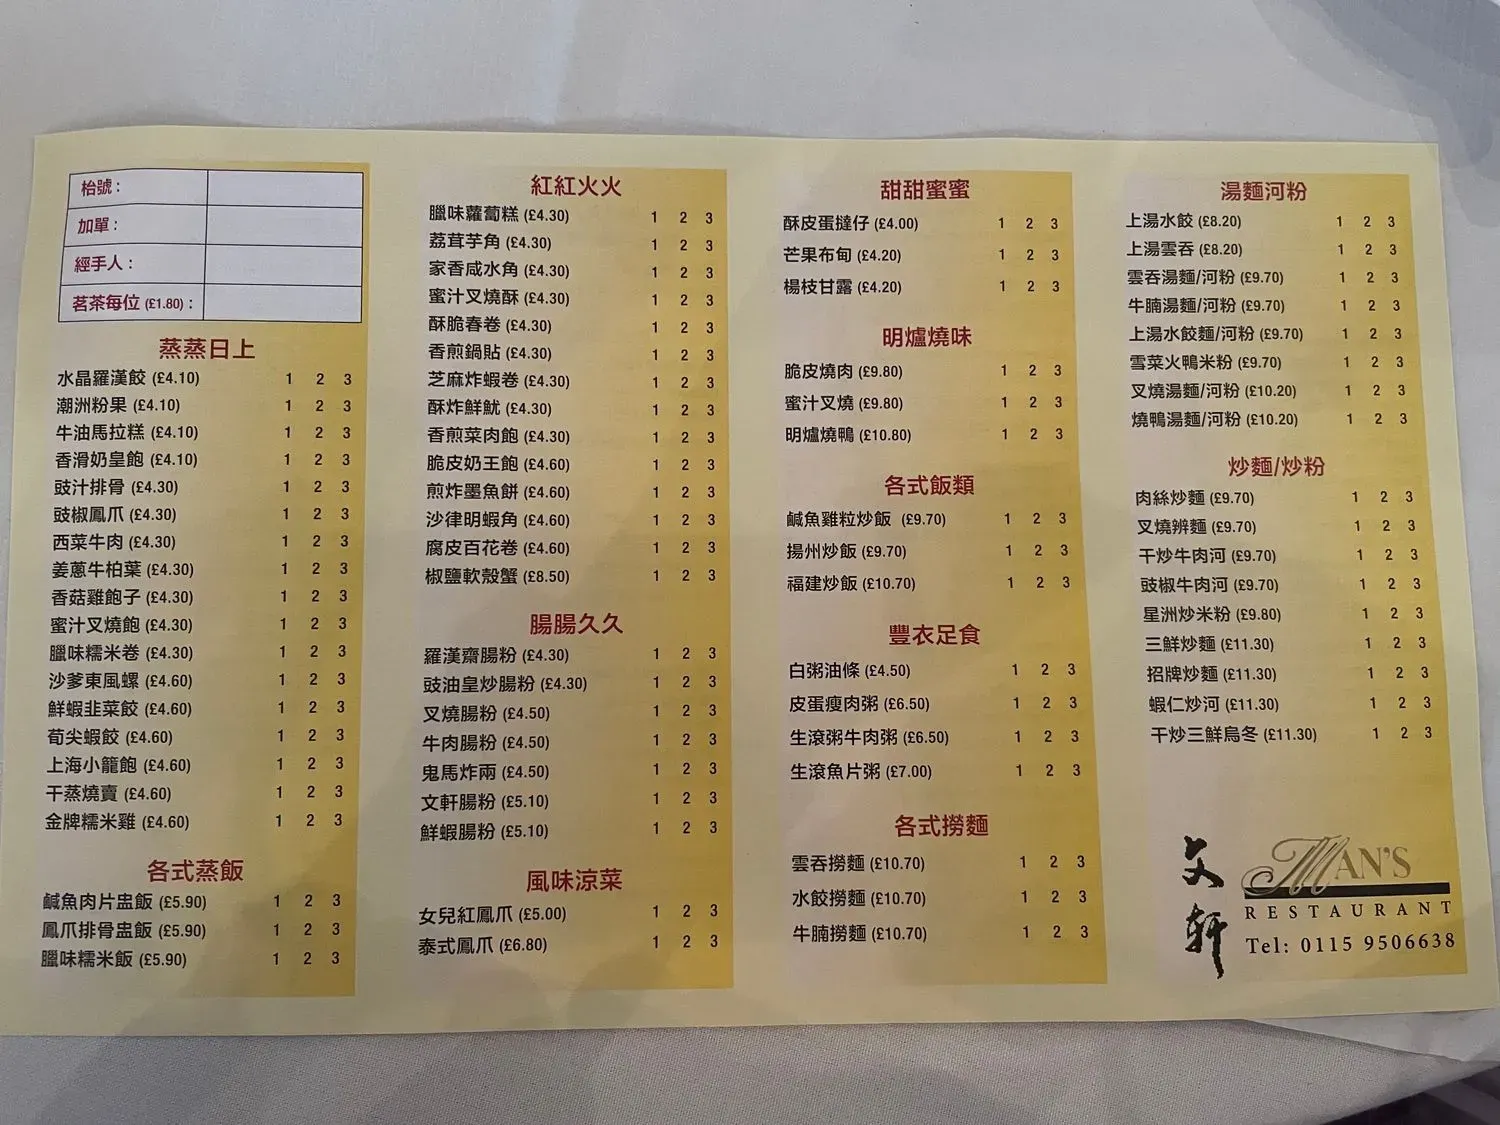 枱號 :
加單 :
經手人 :
茗茶每位 (£1.80) :
蒸蒸日上
水晶羅漢餃 (£4.10) 1 2 3
潮洲粉果 (£4.10) 1 2 3
牛油馬拉糕 (£4.10) 1 2 3
香滑奶皇飽 (£4.10) 1 2 3
豉汁排骨 (£4.30) 1 2 3
豉椒鳳爪 (£4.30) 1 2 3
西菜牛肉 (£4.30) 1 2 3
姜蔥牛柏葉 (£4.30) 1 2 3
香菇雞飽子 (£4.30) 1 2 3
蜜汁叉燒飽 (£4.30) 1 2 3
臘味糯米卷 (£4.30) 1 2 3
沙爹東風螺 (£4.60) 1 2 3
鮮蝦韭菜餃 (£4.60) 1 2 3
荀尖蝦餃 (£4.60) 1 2 3
上海小籠飽 (£4.60) 1 2 3
干蒸燒賣 (£4.60) 1 2 3
金牌糯米雞 (£4.60) 1 2 3
各式蒸飯
鹹魚肉片盅飯 (£5.90) 1 2 3
鳳爪排骨盅飯 (£5.90) 1 2 3
臘味糯米飯 (£5.90) 1 2 3
紅紅火火
臘味蘿蔔糕 (£4.30) 1 2 3
荔茸芋角 (£4.30) 1 2 3
家香咸水角 (£4.30) 1 2 3
蜜汁叉燒酥 (£4.30) 1 2 3
酥脆春卷 (£4.30) 1 2 3
香煎鍋貼 (£4.30) 1 2 3
芝麻炸蝦卷 (£4.30) 1 2 3
酥炸鮮魷 (£4.30) 1 2 3
香煎菜肉飽 (£4.30) 1 2 3
脆皮奶王飽 (£4.60) 1 2 3
煎炸墨魚餅 (£4.60) 1 2 3
沙律明蝦角 (£4.60) 1 2 3
腐皮百花卷 (£4.60) 1 2 3
椒鹽軟殼蟹 (£8.50) 1 2 3
腸腸久久
羅漢齋腸粉 (£4.30) 1 2 3
豉油皇炒腸粉 (£4.30) 1 2 3
叉燒腸粉 (£4.50) 1 2 3
牛肉腸粉 (£4.50) 1 2 3
鬼馬炸兩 (£4.50) 1 2 3
文軒腸粉 (£5.10) 1 2 3
鮮蝦腸粉 (£5.10) 1 2 3
風味涼菜
女兒紅鳳爪 (£5.00) 1 2 3
泰式鳳爪 (£6.80) 1 2 3
甜甜蜜蜜
酥皮蛋撻仔 (£4.00) 1 2 3
芒果布甸 (£4.20) 1 2 3
楊枝甘露 (£4.20) 1 2 3
明爐燒味
脆皮燒肉 (£9.80) 1 2 3
蜜汁叉燒 (£9.80) 1 2 3
明爐燒鴨 (£10.80) 1 2 3
各式飯類
鹹魚雞粒炒飯 (£9.70) 1 2 3
揚州炒飯 (£9.70) 1 2 3
福建炒飯 (£10.70) 1 2 3
豐衣足食
白粥油條 (£4.50) 1 2 3
皮蛋瘦肉粥 (£6.50) 1 2 3
生滾粥牛肉粥 (£6.50) 1 2 3
生滾魚片粥 (£7.00) 1 2 3
各式撈麵
雲吞撈麵 (£10.70) 1 2 3
水餃撈麵 (£10.70) 1 2 3
牛腩撈麵 (£10.70) 1 2 3
湯麵河粉
上湯水餃 (£8.20) 1 2 3
上湯雲吞 (£8.20) 1 2 3
雲吞湯麵/河粉 (£9.70) 1 2 3
牛腩湯麵/河粉 (£9.70) 1 2 3
上湯水餃麵/河粉 (£9.70) 1 2 3
雪菜火鴨米粉 (£9.70) 1 2 3
叉燒湯麵/河粉 (£10.20) 1 2 3
燒鴨湯麵/河粉 (£10.20) 1 2 3
炒麵/炒粉
肉絲炒麵 (£9.70) 1 2 3
叉燒辨麵 (£9.70) 1 2 3
干炒牛肉河 (£9.70) 1 2 3
豉椒牛肉河 (£9.70) 1 2 3
星洲炒米粉 (£9.80) 1 2 3
三鮮炒麵 (£11.30) 1 2 3
招牌炒麵 (£11.30) 1 2 3
蝦仁炒河 (£11.30) 1 2 3
干炒三鮮烏冬 (£11.30) 1 2 3
文軒
MAN'S
RESTAURANT
Tel: 0115 9506638